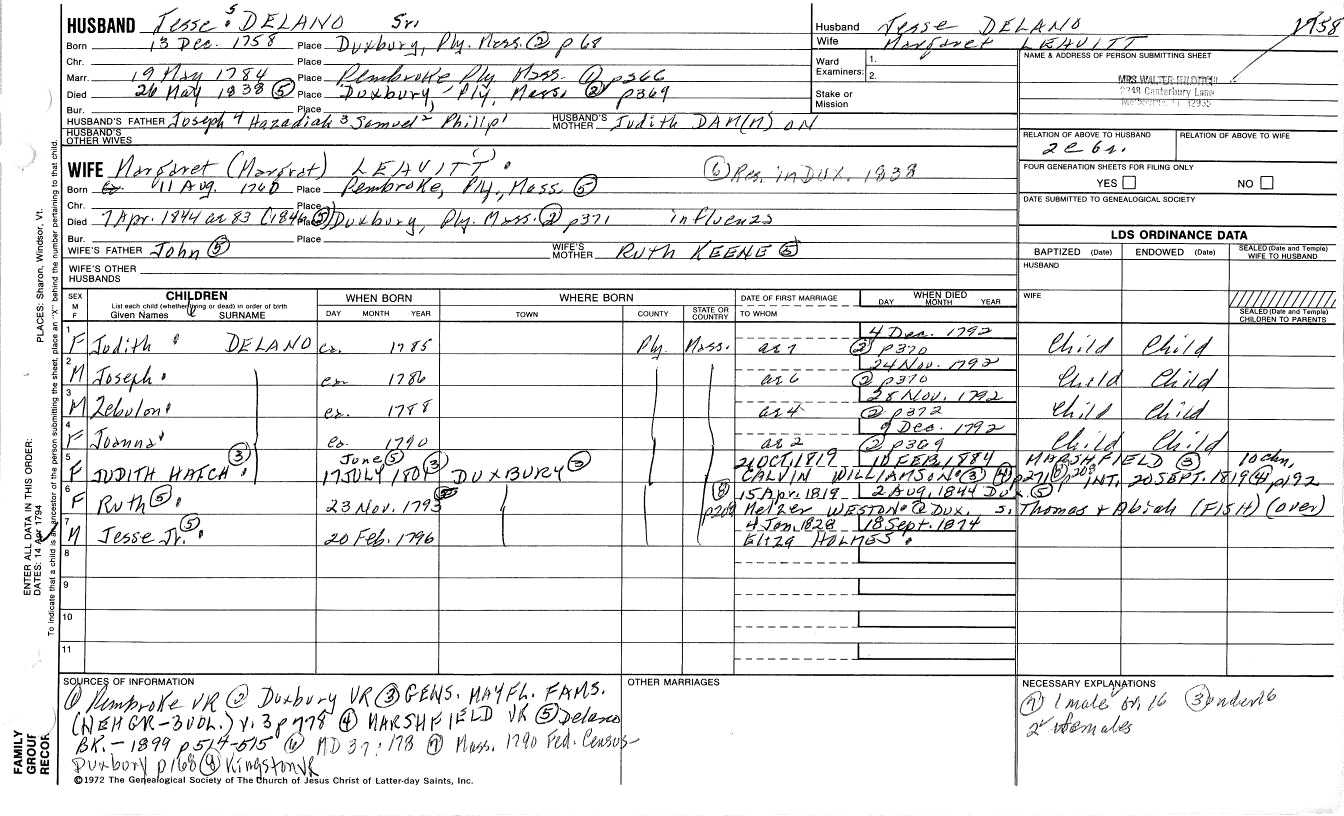 HUSBAND Jesse 5 DELANO Sr.
Born 13 Dec. 1758 Place Duxbury, Ply. Mass. ② p68
Chr. Place
Marr. 19 May 1784 Place Pembroke Ply Mass. ① p266
Died 26 May 1838 ⑤ Place Duxbury, Ply, Mass. ② p369
Bur. Place
HUSBAND'S FATHER Joseph 4 Hazadiah 3 Samuel 2 Philip 1 HUSBAND'S MOTHER Judith DAM(M)ON
HUSBAND'S OTHER WIVES
Husband Jesse DELANO 1758
Wife Margaret LEAVITT
Ward Examiners: 1.
2.
Stake or Mission
NAME & ADDRESS OF PERSON SUBMITTING SHEET
MRS WALTER
Canterbury Lane
RELATION OF ABOVE TO HUSBAND RELATION OF ABOVE TO WIFE
2c6r.
FOUR GENERATION SHEETS FOR FILING ONLY
YES NO
DATE SUBMITTED TO GENEALOGICAL SOCIETY
WIFE Margaret (Margrat) LEAVITT ⑥ Res. in DUX. 1838
Born 11 Aug. 1760 Place Pembroke, Ply, Mass. ⑤
Chr. Place
Died 7 Apr. 1844 ae 83 (1846 ⑤) Place Duxbury, Ply. Mass. ② p371 influenza
Bur. Place
WIFE'S FATHER John ⑤ WIFE'S MOTHER Ruth KEENE ⑤
WIFE'S OTHER HUSBANDS
LDS ORDINANCE DATA
BAPTIZED (Date) ENDOWED (Date) SEALED (Date and Temple) WIFE TO HUSBAND
HUSBAND
WIFE
SEALED (Date and Temple) CHILDREN TO PARENTS
SEX M F CHILDREN List each child (whether living or dead) in order of birth Given Names SURNAME WHEN BORN DAY MONTH YEAR WHERE BORN TOWN COUNTY STATE OR COUNTRY DATE OF FIRST MARRIAGE TO WHOM WHEN DIED DAY MONTH YEAR
1 F Judith DELANO ca. 1785 Ply. Mass. ae 7 4 Dec. 1792 ② p370 Child Child
2 M Joseph ca. 1786 ae 6 24 Nov. 1792 ② p370 Child Child
3 M Zebulon ca. 1788 ae 4 28 Nov. 1792 ② p372 Child Child
4 F Joanna ca. 1790 ae 2 9 Dec. 1792 ② p369 Child Child
5 F JUDITH HATCH ③ June ⑤ 17 JULY 1801 ③ DUXBURY ③ 21 OCT, 1819 10 FEB, 1884 MARSHFIELD ③ 10 chn.
CALVIN WILLIAMSON ③ ④ p271 INT. 20 SEPT. 1819 ④ p192
6 F Ruth ⑤ 23 Nov. 1793 ⑧ p202 15 Apr. 1819 2 AUG, 1844 Dux. ⑤
Melzer WESTON @ DUX. s. Thomas & Abiah (FISH) (over)
7 M Jesse Jr. ⑤ 20 Feb. 1796 4 Jan. 1828 18 Sept. 1874
Eliza HOLMES
8
9
10
11
SOURCES OF INFORMATION
① Pembroke VR ② Duxbury VR ③ GENS. MAYFL. FAMS.
(NEHGR-3VOL.) v. 3 p778 ④ MARSHFIELD VR ⑤ Delano
BK. - 1899 p514-515 ⑥ MD 37:178 ⑦ Mass. 1790 Fed. Census-
Duxbury p168 ⑧ Kingston VR
OTHER MARRIAGES
NECESSARY EXPLANATIONS
⑦ 1 male ov. 16 3 under 16
2 females
©1972 The Genealogical Society of The Church of Jesus Christ of Latter-day Saints, Inc.
ENTER ALL DATA IN THIS ORDER:
DATES: 14 Apr 1794 PLACES: Sharon, Windsor, Vt.
To indicate that a child is an ancestor of the person submitting the sheet, place an "X" behind the number pertaining to that child.
FAMILY GROUP RECOR